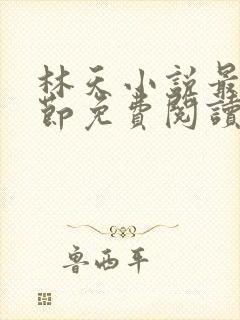 林天小說最
節免費閱讀
魯西平